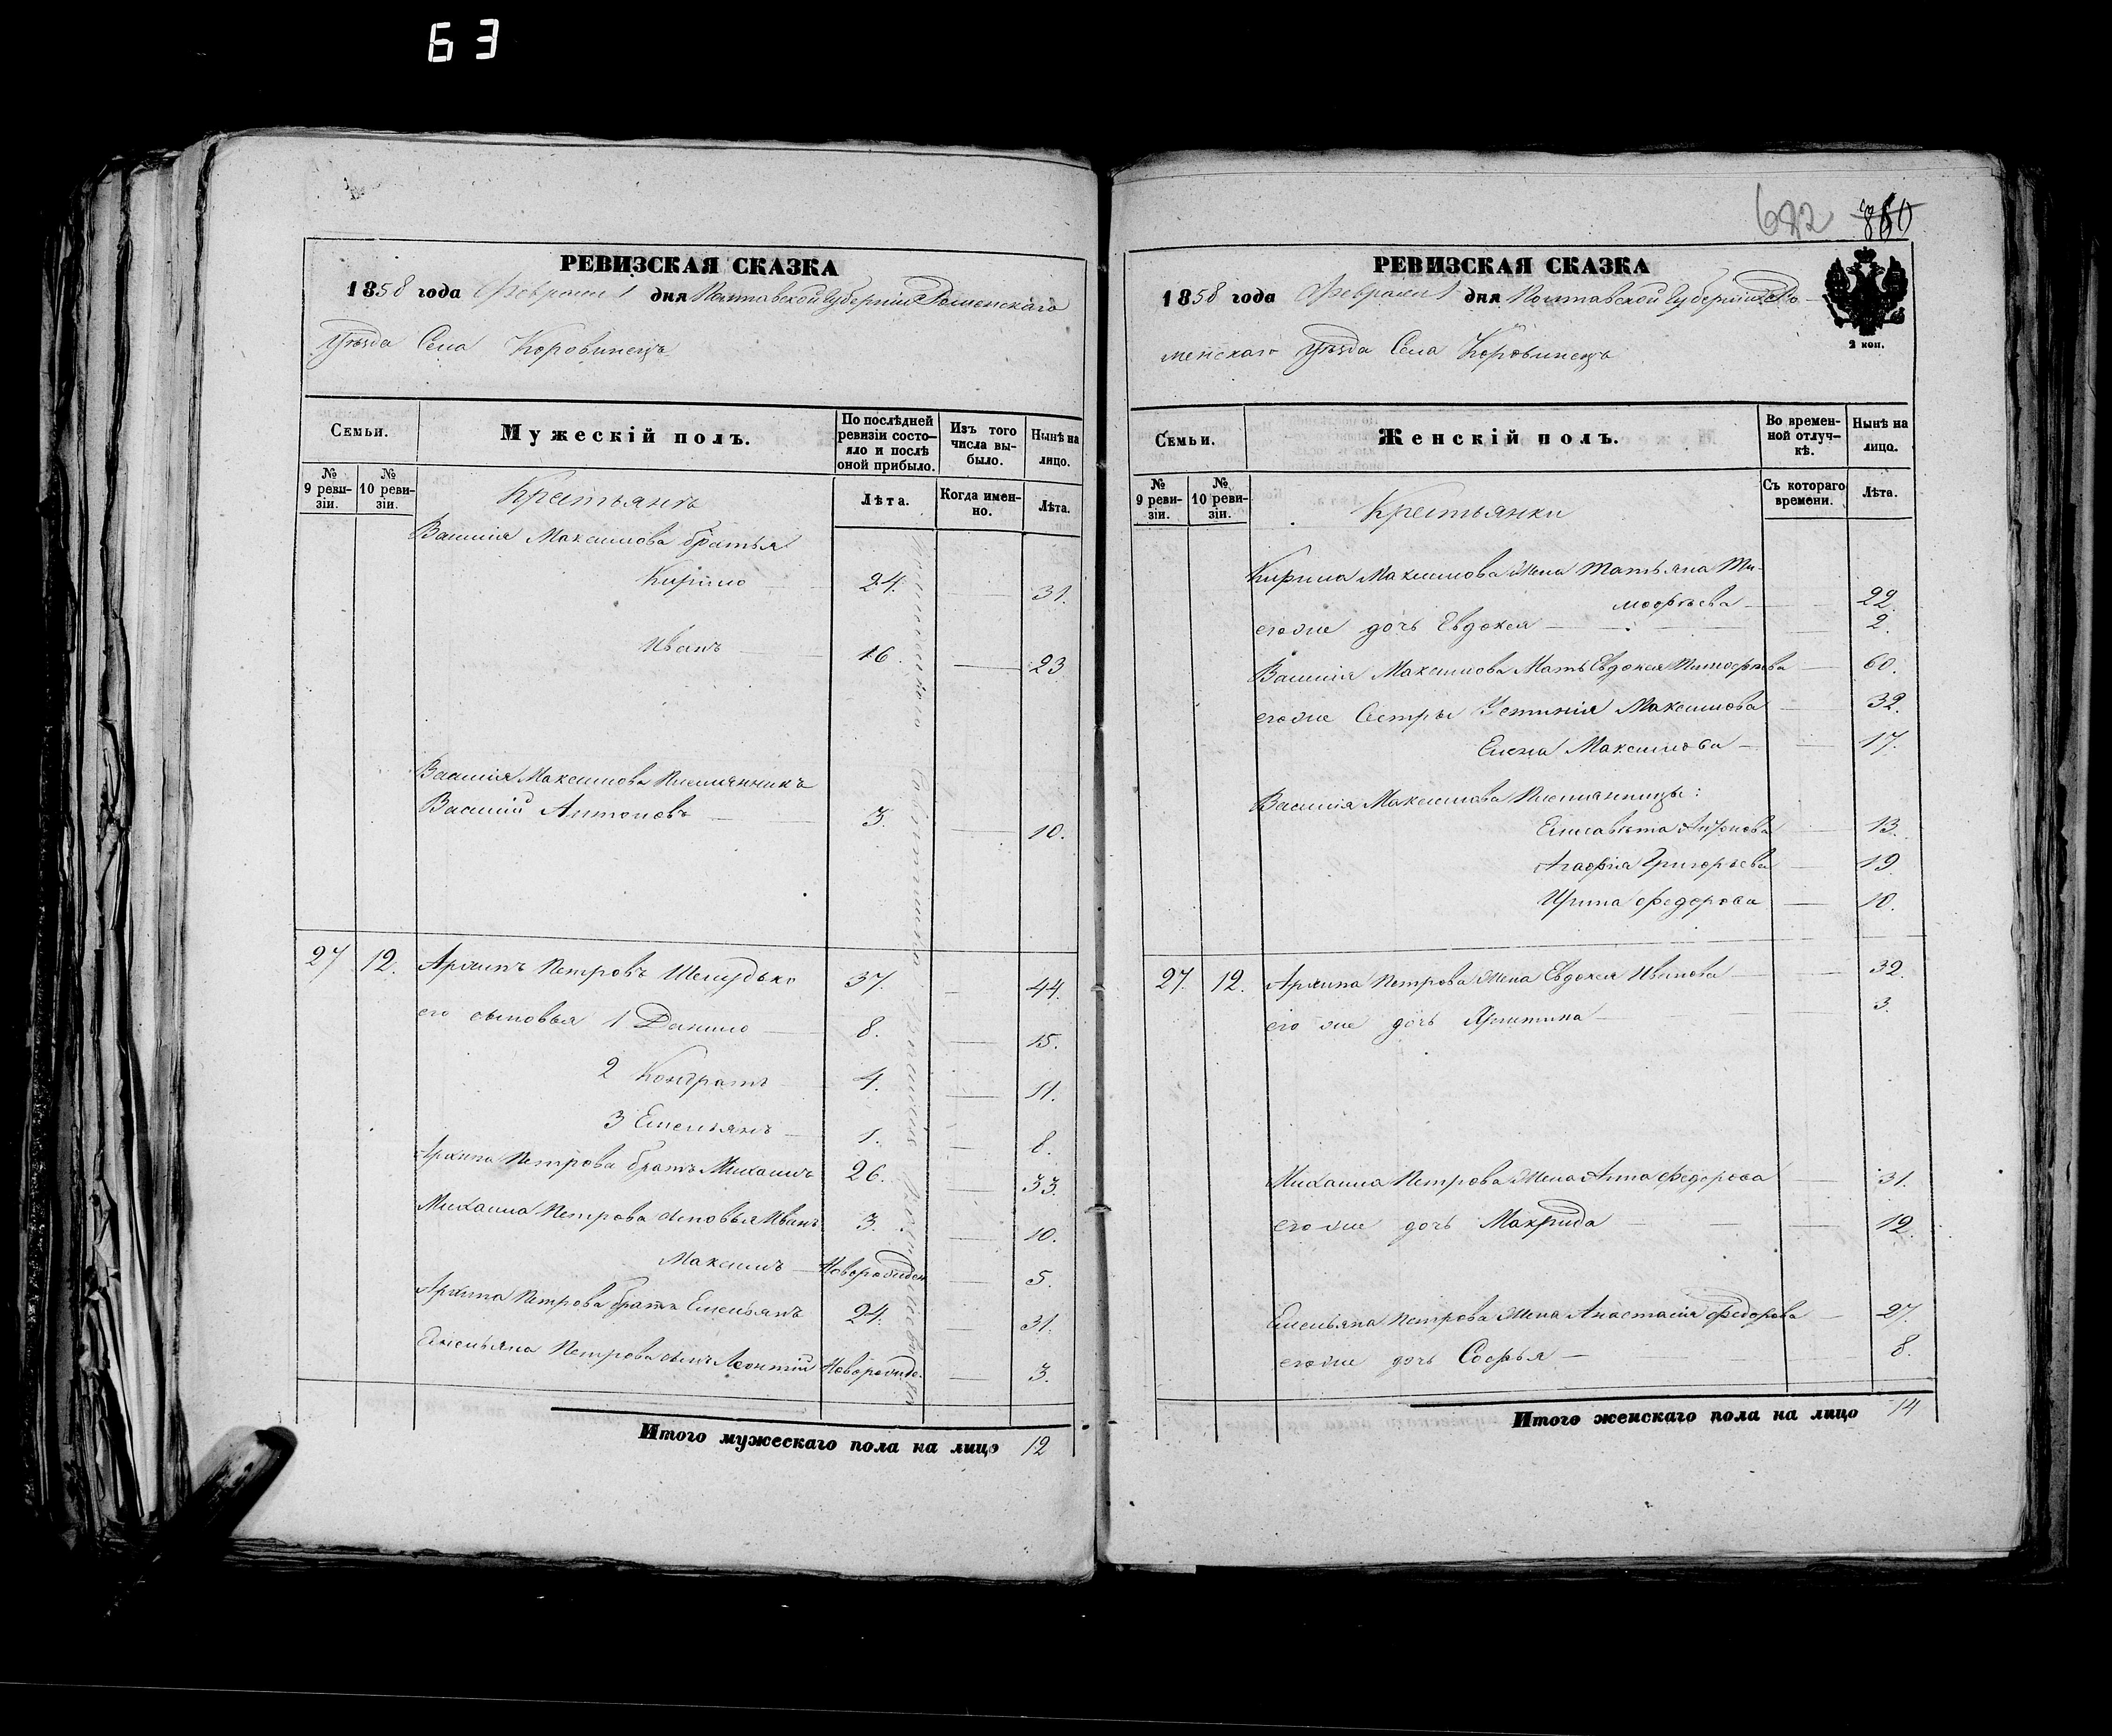 63
РЕВИЗСКАЯ СКАЗКА
1858 года Февраля 1 дня Полтавской Губернии Роменскаго
Уѣзда Села Коровинецъ
Семьи.
Мужескій полъ.
По послѣдней ревизіи состояло и послѣ оной прибыло.
Изъ того числа выбыло.
Нынѣ на лицо.
№ 9 ревизіи.
№ 10 ревизіи.
Лѣта.
Когда именно.
Лѣта.
Крестьянъ
Василія Максимова братья
Кирило 24. 31.
Иванъ 16. 23
Василія Максимова Племянникъ
Василій Антоновъ 3. 10.
27 12. Архипъ Петровъ Шелудько 37. 44.
его сыновья 1 Данило 8. 15.
2 Кондратъ 4. 11.
3 Емельянъ 1. 8.
Архипа Петрова братъ Михаилъ 26. 33.
Михаила Петрова сыновья Иванъ 3. 10.
Максимъ Новорожден 5.
Архипа Петрова братъ Емельянъ 24. 31.
Емельяна Петрова сынъ Леонтій Новорожде. 3.
Итого мужескаго пола на лицо 12
682 860
РЕВИЗСКАЯ СКАЗКА
1858 года Февраля 1 дня Полтавской Губерніи Ро-
менскаго Уѣзда Села Коровинецъ
2 коп.
Семьи.
Женскій полъ.
Во временной отлучкѣ.
Нынѣ на лицо.
№ 9 ревизіи.
№ 10 ревизіи.
Съ котораго времени.
Лѣта.
Крестьянки
Кирила Максимова Жена Татьяна Ти-
мофѣева 22.
его же дочь Евдокея 2.
Василія Максимова Мать Евдокея Тимофѣева 60.
его же Сестры Устинія Максимова 32.
Елена Максимова 17.
Василія Максимова Племянницы:
Елисавета 13.
Агафія Григорьева 19.
Ирина Федорова 10.
27. 12. Архипа Петрова Жена Евдокея Иванова 32.
его же дочь Христина 3.
Михаила Петрова Жена Анна Федорова 31.
его же дочь Макрида 12.
Емельяна Петрова Жена Анастасія Федорова 27.
его же дочь Софья 8.
Итого женскаго пола на лицо 14